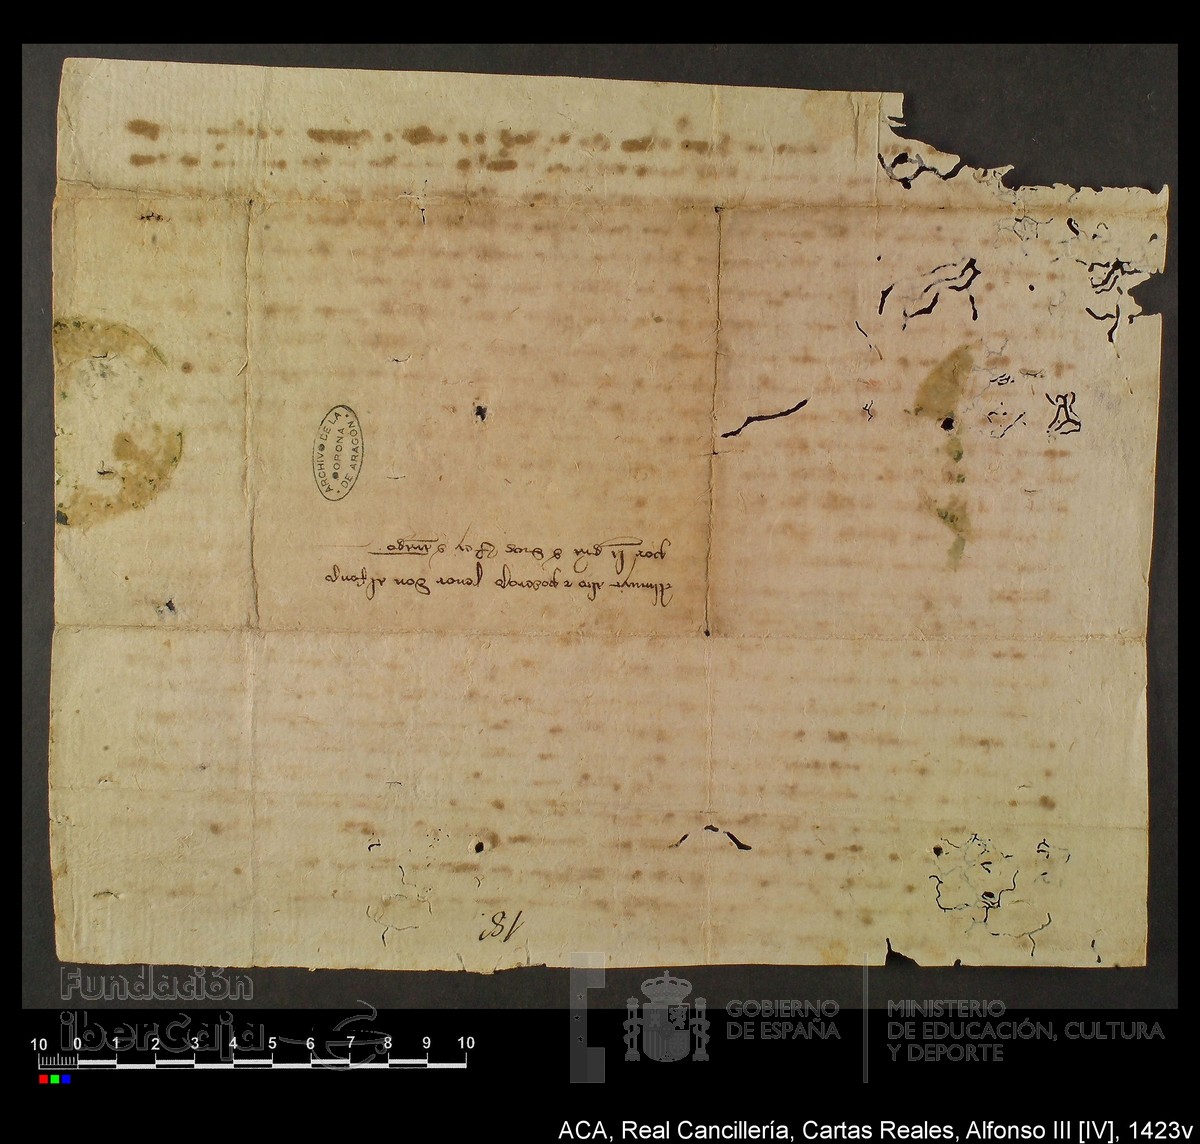 Al muyt alto & poderoso senor don alfonso
por la gra de dios Rey de arago
ARCHIVO DE LA
CORONA
DE ARAGON
18
Fundación
iberCaja
10 0 1 2 3 4 5 6 7 8 9 10
GOBIERNO
DE ESPAÑA
MINISTERIO
DE EDUCACIÓN, CULTURA
Y DEPORTE
ACA, Real Cancillería, Cartas Reales, Alfonso III [IV], 1423v